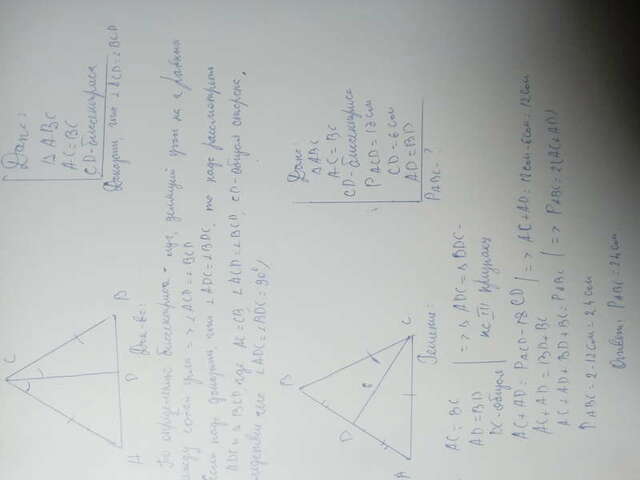 C
A
D
B
Дано:
△ ABC
AC = BC
CD - биссектриса
Доказать что ∠ACD = ∠BCD
Док-во:
По определению биссектриса - луч, делящий угол на 2 равных
между собой угла => ∠ACD = ∠BCD
Если надо доказать что ∠ADC = ∠BDC, то надо рассмотреть
ADC и △ BCD где AC = CB, ∠ACD = ∠BCD, CD - общая сторона,
что ∠ADC = ∠BDC = 90°/
B
D
6
A
C
Дано:
△ABC
AC = BC
CD - биссектриса
CD = 6 см
AD = BD
P ABC - ?
Решение:
AC = BC
AD = BD
DC - общая
=> △ ADC = △ BDC -
по III признаку
AC + AD = P ACD - CD
=> AC + AD = 18 см - 6 см = 12 см
AC + AD = BD + BC
AC + AD + BD + BC = P ABC
=> P ABC = 2(AC + AD)
P ABC = 2·12 см = 24 см
Ответ: P ABC = 24 см